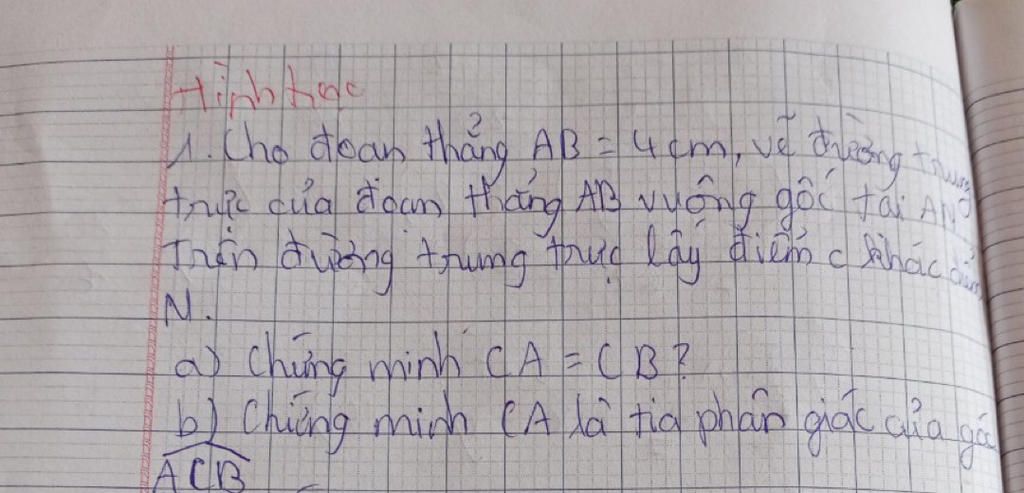 Hình học
1. Cho đoạn thẳng AB = 4cm, vẽ đường trung
trực của đoạn thẳng AB vuông góc tại
Trên đường trung trực lấy điểm C khác điểm
N.
a) Chứng minh CA = CB?
b) Chứng minh CA là tia phân giác của góc
ACB